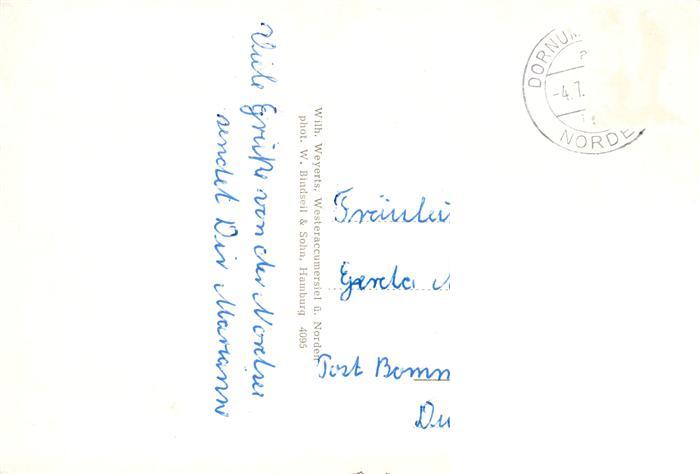 Viele Grüße von der Nordsee
sendet Dir Marianne
Wilh. Weyerts, Westeraccumersiel ü. Norden
phot. W. Bindseil & Sohn, Hamburg 4095
DORNUM
-4.7.
NORDE
Fräulei
Gerda
Post Bomm
Du